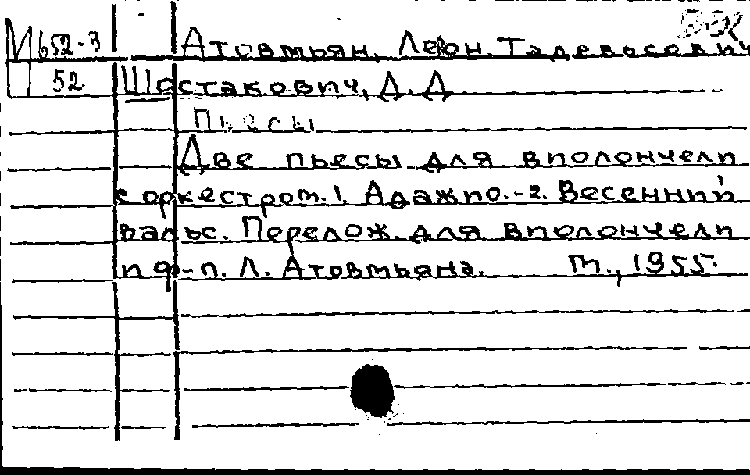 М 652-3 Атовмьян, Левон Тадевосович
52 Шостакович, Д. Д
Пьесы
Две пьесы для виолончели
с оркестром. 1. Адажио.-2. Весенний
вальс. Перелож. для виолончели
и ф-п. Л. Атовмьяна. М., 1955.